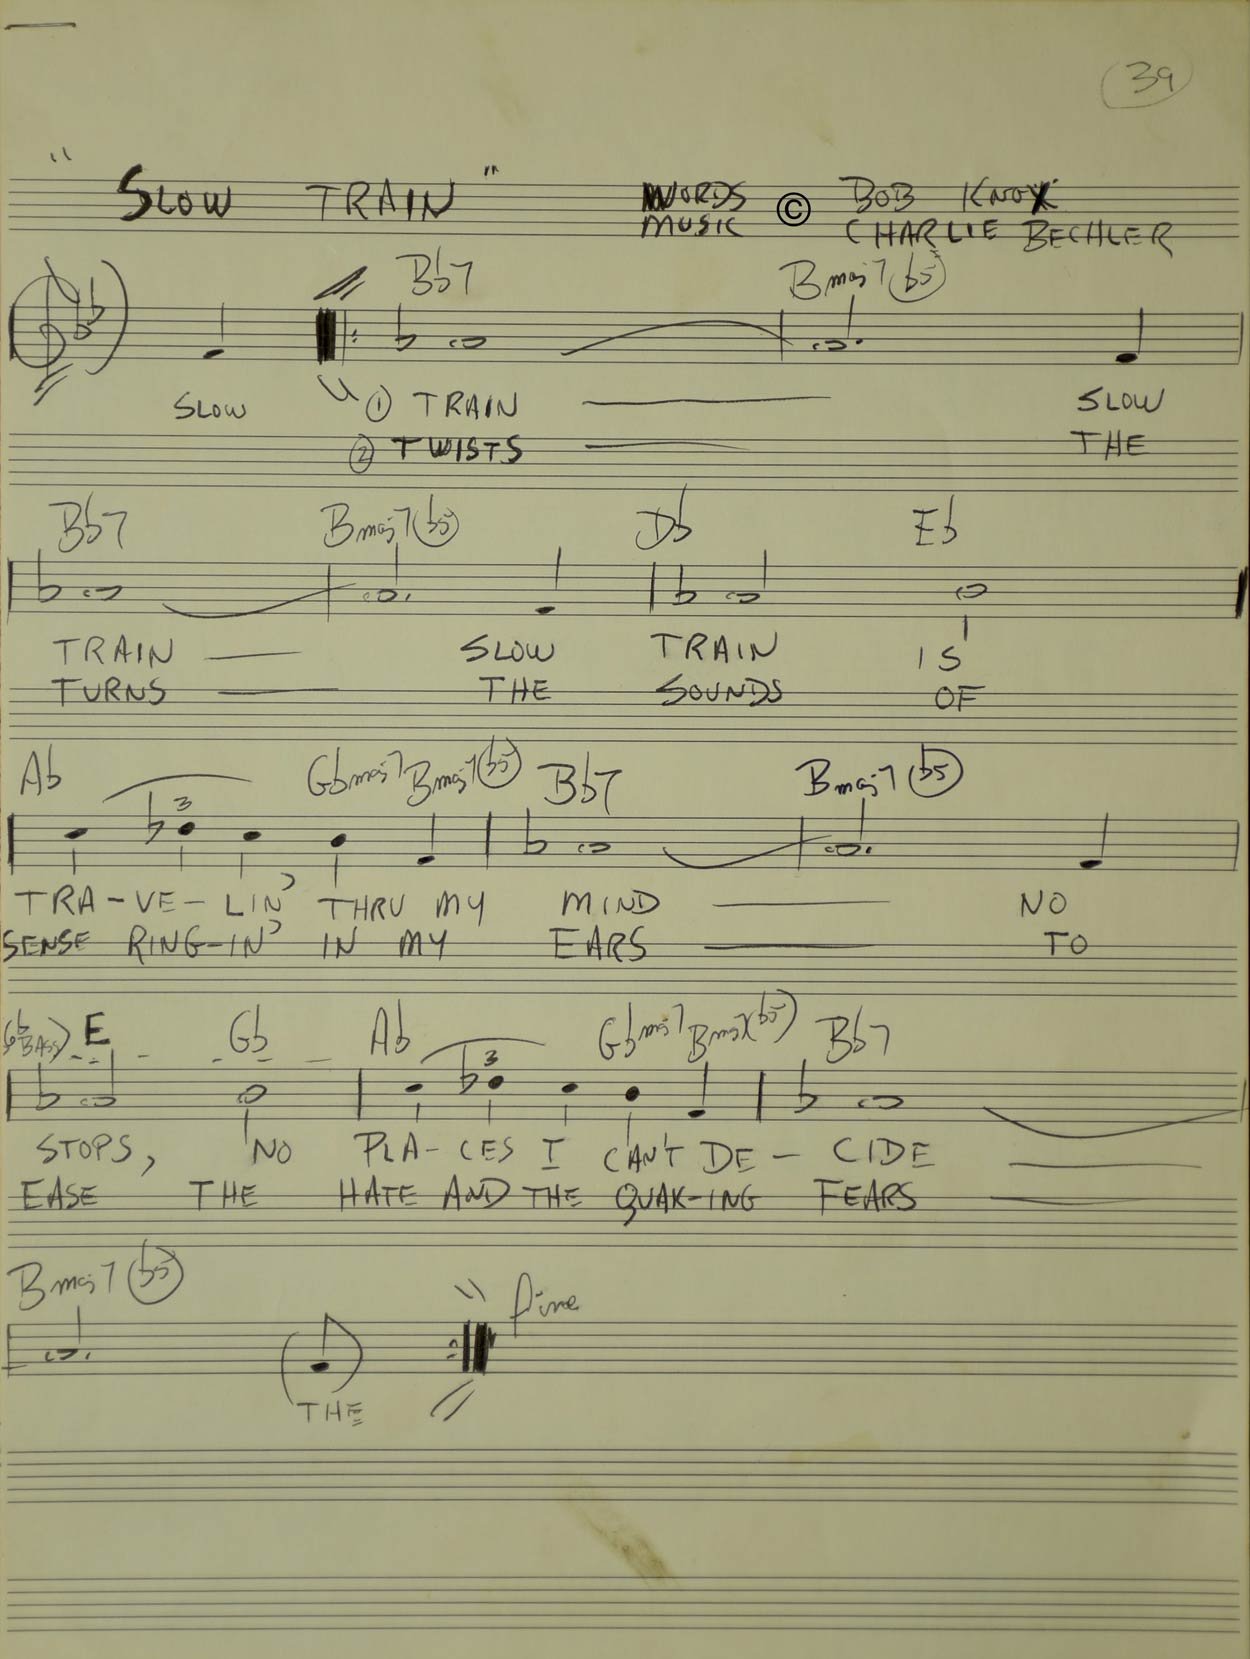 39
"SLOW TRAIN" WORDS © BOB KNOX
MUSIC CHARLIE BECHLER
B♭7 Bmaj7(♭5)
SLOW ① TRAIN SLOW
② TWISTS THE
B♭7 Bmaj7(♭5) D♭ E♭
TRAIN SLOW TRAIN IS
TURNS THE SOUNDS OF
A♭ 3 G♭maj7 Bmaj7(♭5) B♭7 Bmaj7(♭5)
TRA-VE-LIN' THRU MY MIND NO
SENSE RING-IN' IN MY EARS TO
(G♭ BASS) E G♭ A♭ 3 G♭maj7 Bmaj7(♭5) B♭7
STOPS, NO PLA-CES I CAN'T DE-CIDE
EASE THE HATE AND THE QUAK-ING FEARS
Bmaj7(♭5) fine
THE